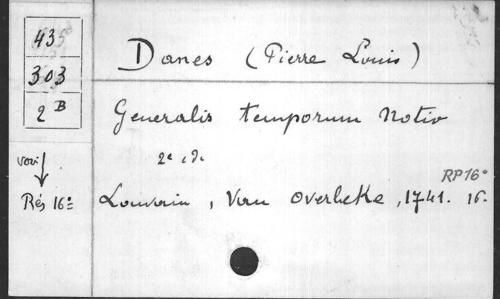 435
303
2 B
voir
Rés 16º
Danes (Pierre Louis)
Generalis temporum notio
2e éd.
RP16º
Louvain, Van Overbeke, 1741. 16.